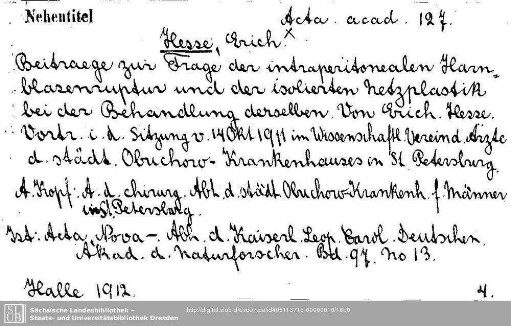 Nebentitel
Acta. acad. 127.
Hesse, Erich ×
Beitraege zur Frage der intraperitonealen Harn-
blasenruptur und der isolierten Netzplastik
bei der Behandlung derselben. Von Erich Hesse.
Vortr. i. d. Sitzung v. 14 Okt 1911 im Wissenschaftl. Verein d. Ärzte
d. städt. Obuchow-Krankenhauses in St. Petersburg.
A. Kopf: A. d. chirurg. Abt. d. städt. Obuchow-Krankenh. f. Männer
in St. Petersburg.
Ist: Acta, Nova -. Abh. d. Kaiserl. Leop. Carol. Deutschen
Akad. d. Naturforscher. Bd. 97. No 13.
Halle 1912. 4.
SLUB Sächsische Landesbibliothek –
Staats- und Universitätsbibliothek Dresden